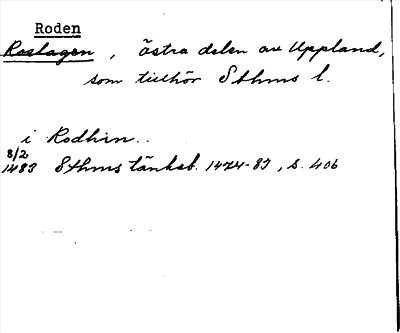 Roden
Roslagen, östra delen av Uppland,
som tillhör Sthms l.
i Rodhin..
8/2
1483 Sthms tänkeb. 1474-83, s. 406